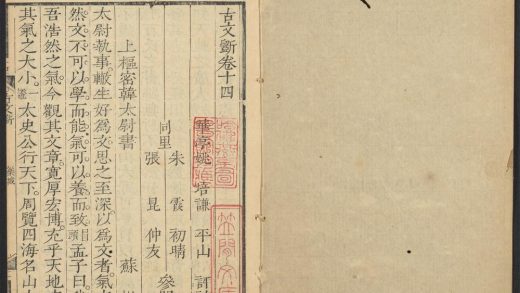 古文斷卷十四
華亭姚培謙平山
朱霞初晴
同里
張昆仲友
上樞密韓太尉書
蘇
太尉執事轍生好爲文思之至深以爲文者氣
然文不可以學而能氣可以養而致孟子曰
吾浩然之氣今觀其文章寬厚宏博充乎天地
其氣之大小太史公行天下周覽四海名山
古文斷